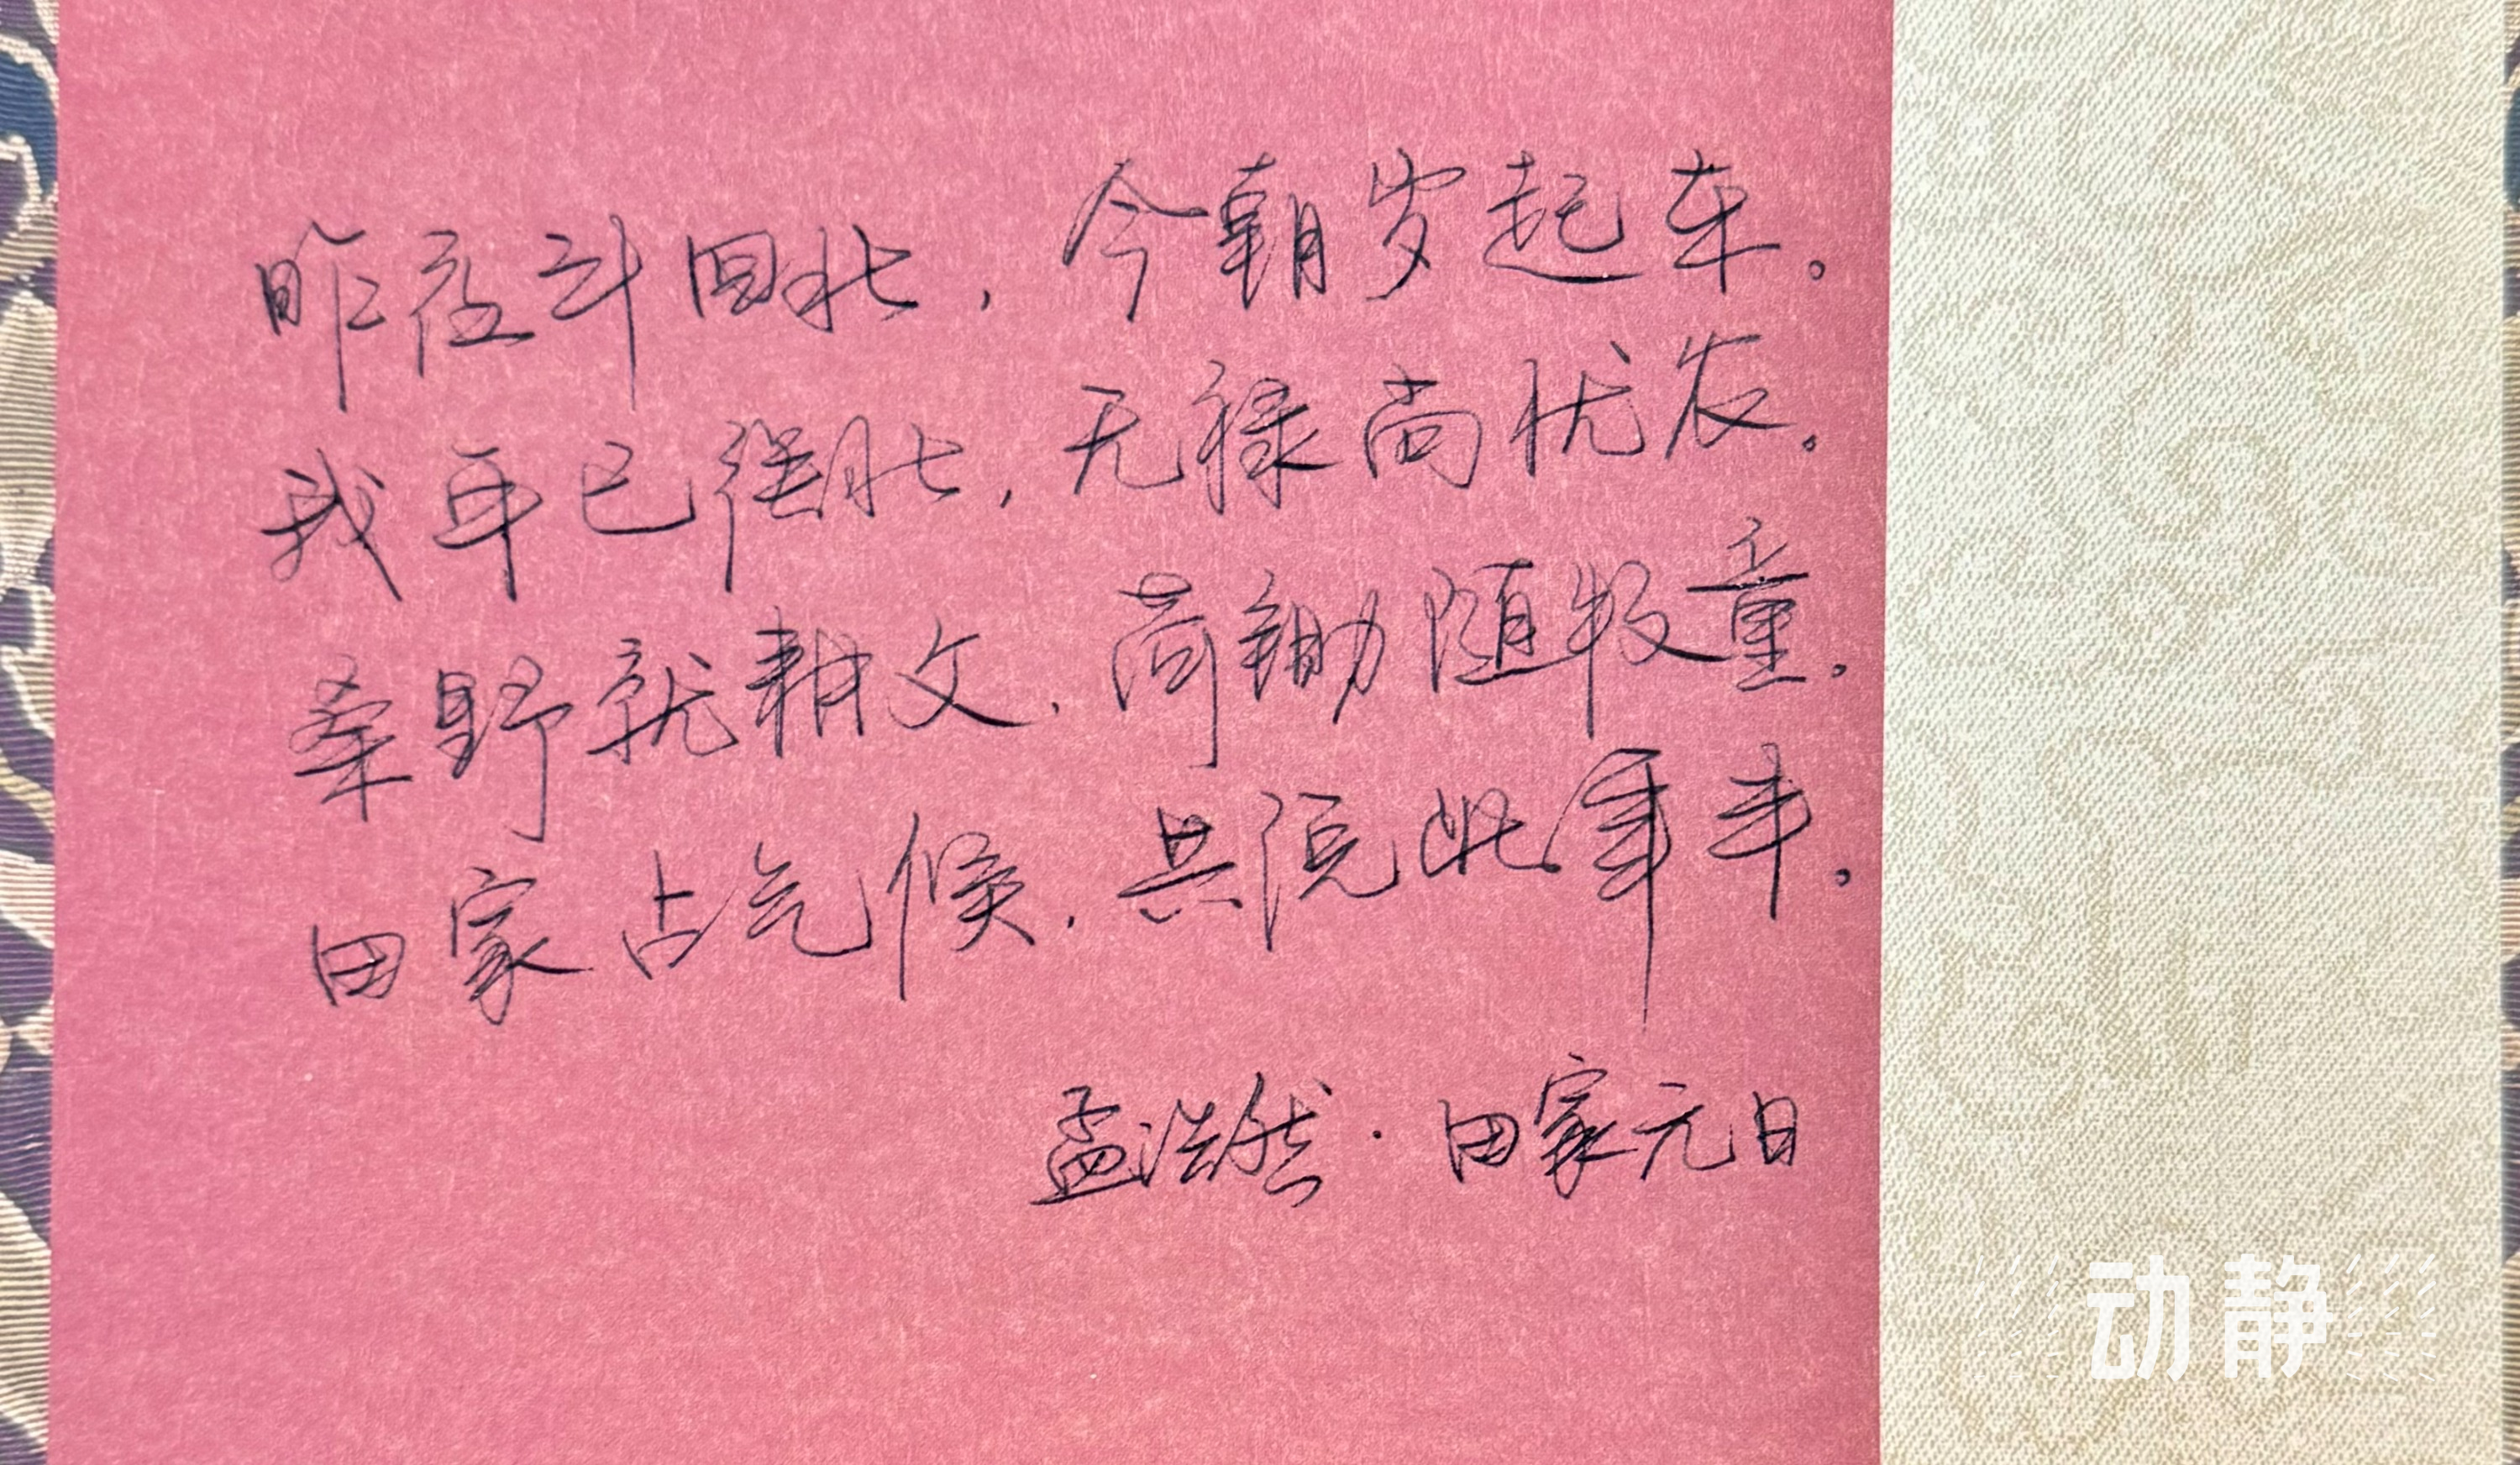 昨夜斗回北，今朝岁起东。
我年已强壮，无禄尚忧农。
桑野就耕父，荷锄随牧童。
田家占气候，共说此年丰。
孟浩然·田家元日
动静